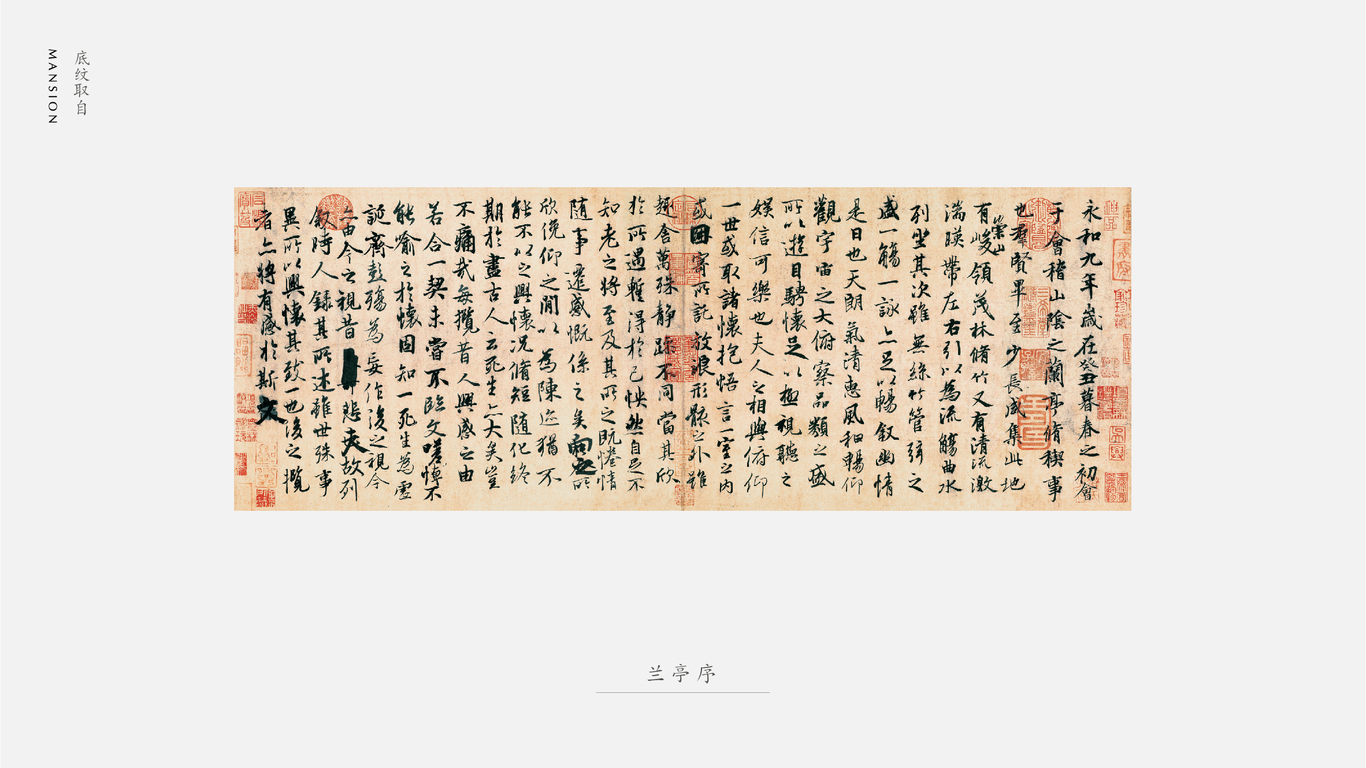 底纹取自
MANSION
永和九年歲在癸丑暮春之初會
于會稽山陰之蘭亭脩稧事
也羣賢畢至少長咸集此地
有崇山峻領茂林脩竹又有清流激
湍暎帶左右引以為流觴曲水
列坐其次雖無絲竹管弦之
盛一觴一詠亦足以暢叙幽情
是日也天朗氣清惠風和暢仰
觀宇宙之大俯察品類之盛
所以遊目騁懷足以極視聽之
娛信可樂也夫人之相與俯仰
一世或取諸懷抱悟言一室之內
或因寄所託放浪形骸之外雖
趣舍萬殊靜躁不同當其欣
於所遇蹔得於己怏然自足不
知老之將至及其所之既惓情
隨事遷感慨係之矣向之所
欣俛仰之閒以為陳迹猶不
能不以之興懷況脩短隨化終
期於盡古人云死生亦大矣豈
不痛哉每攬昔人興感之由
若合一契未嘗不臨文嗟悼不
能喻之於懷固知一死生為虛
誕齊彭殤為妄作後之視今
亦由今之視昔悲夫故列
叙時人錄其所述雖世殊事
異所以興懷其致一也後之攬
者亦將有感於斯文
兰亭序